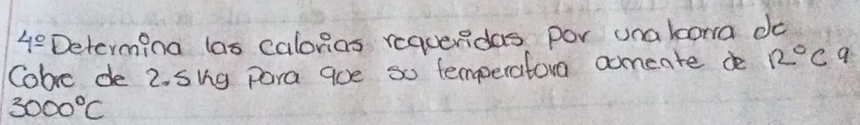 4º Determina las calorias requeridas por una barra de
Cobre de 2.5 kg para que su temperatura aumente de 12°C a
3000°C